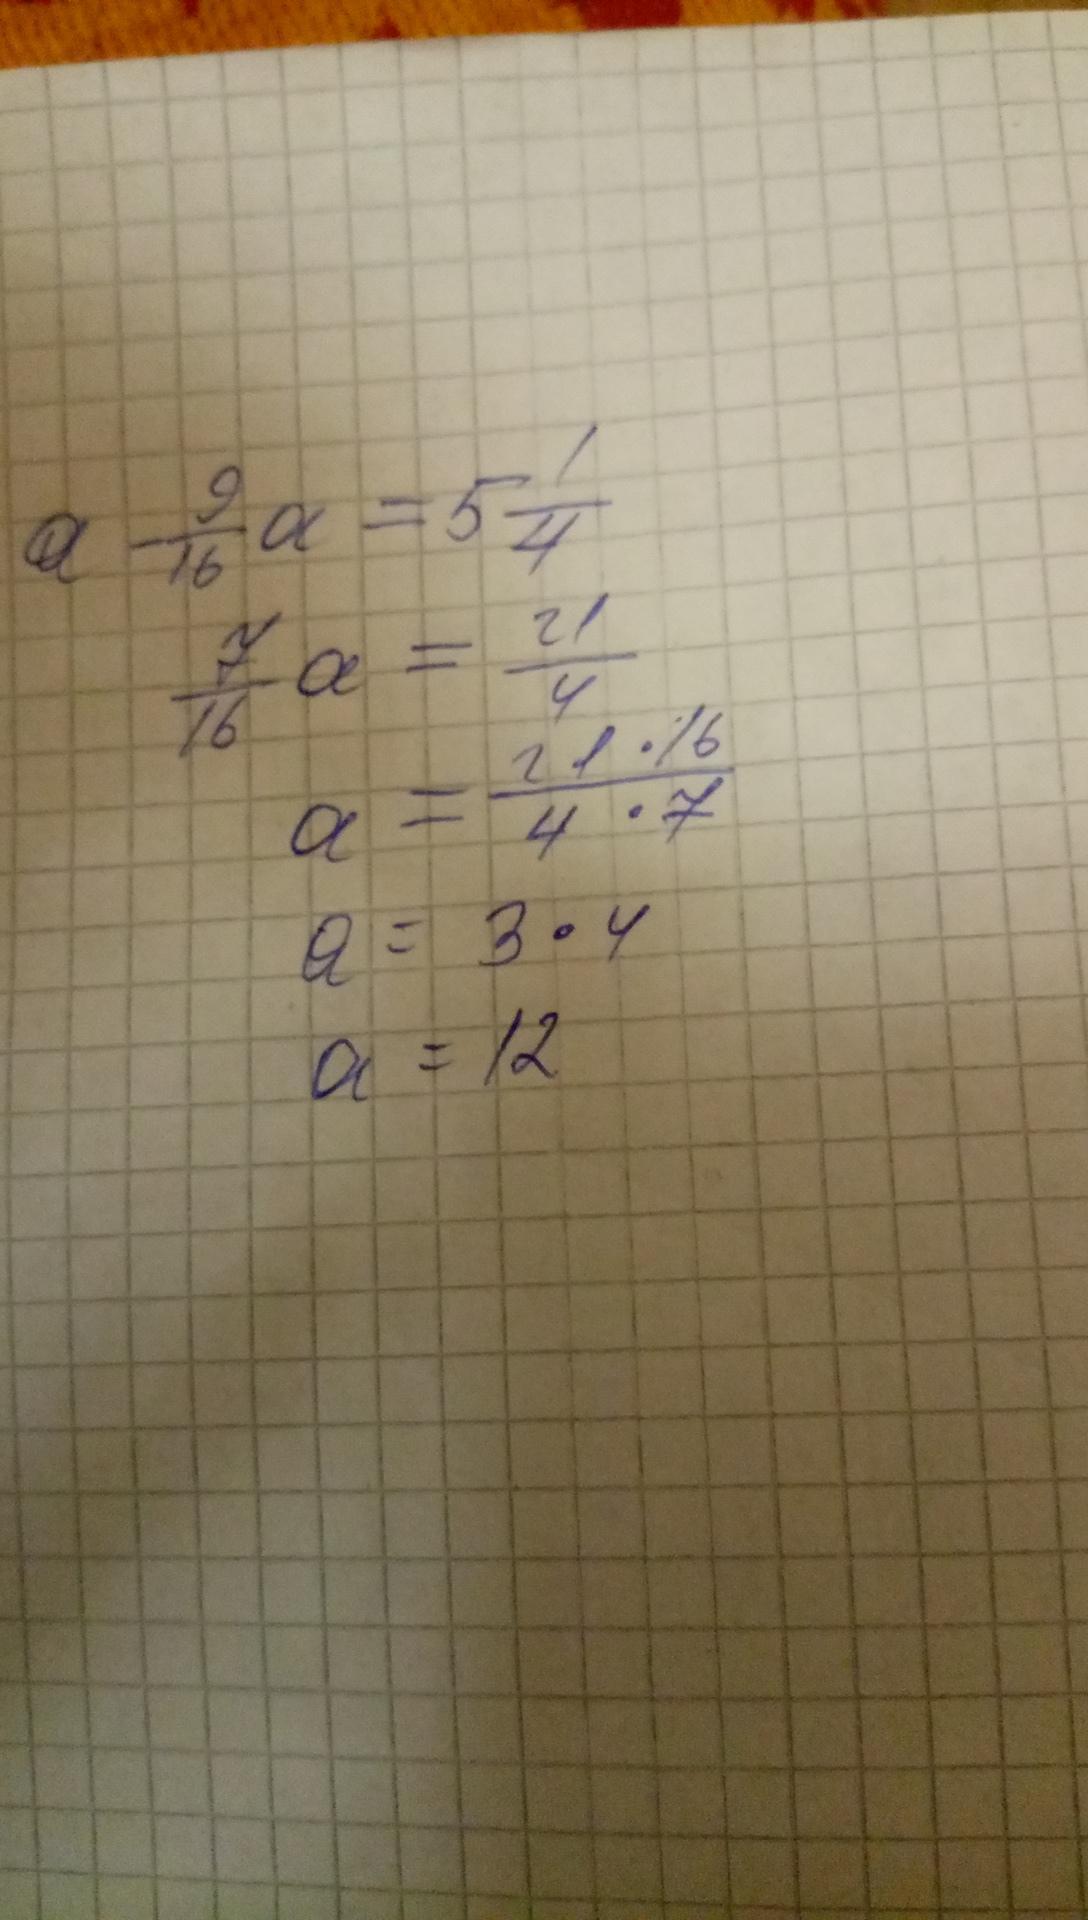 a - 9/16 a = 5 1/4
7/16 a = 21/4
a = 21·16/4·7
a = 3·4
a = 12